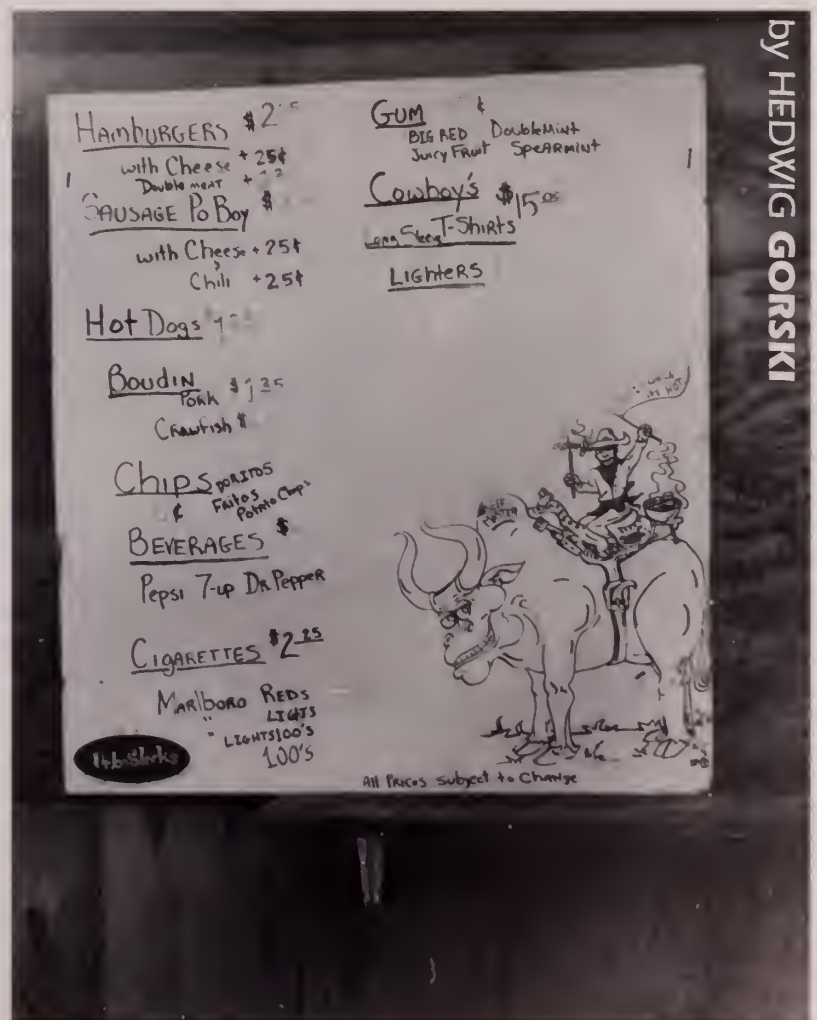 by HEDWIG GORSKI
HAMBURGERS $2
with Cheese + 25¢
Double MEAT +
SAUSAGE Po Boy $
with Cheese + 25¢
Chili + 25¢
Hot Dogs
BOUDIN
PORK $1.25
CRAWFISH $
CHIPS DORITOS
¢ Fritos
Potato Chips
BEVERAGES $
Pepsi 7-up DR PEPPER
CIGARETTES $2.25
MARlboRO REDS
" LIGHTS
" LIGHTS100'S
100'S
GUM ¢
BIG RED DoubleMint
Juicy FRuit SPEARMINT
Cowboy's $15.00
Long Sleeve T-SHIRTS
LIGHTERS
All PRICES Subject to Change